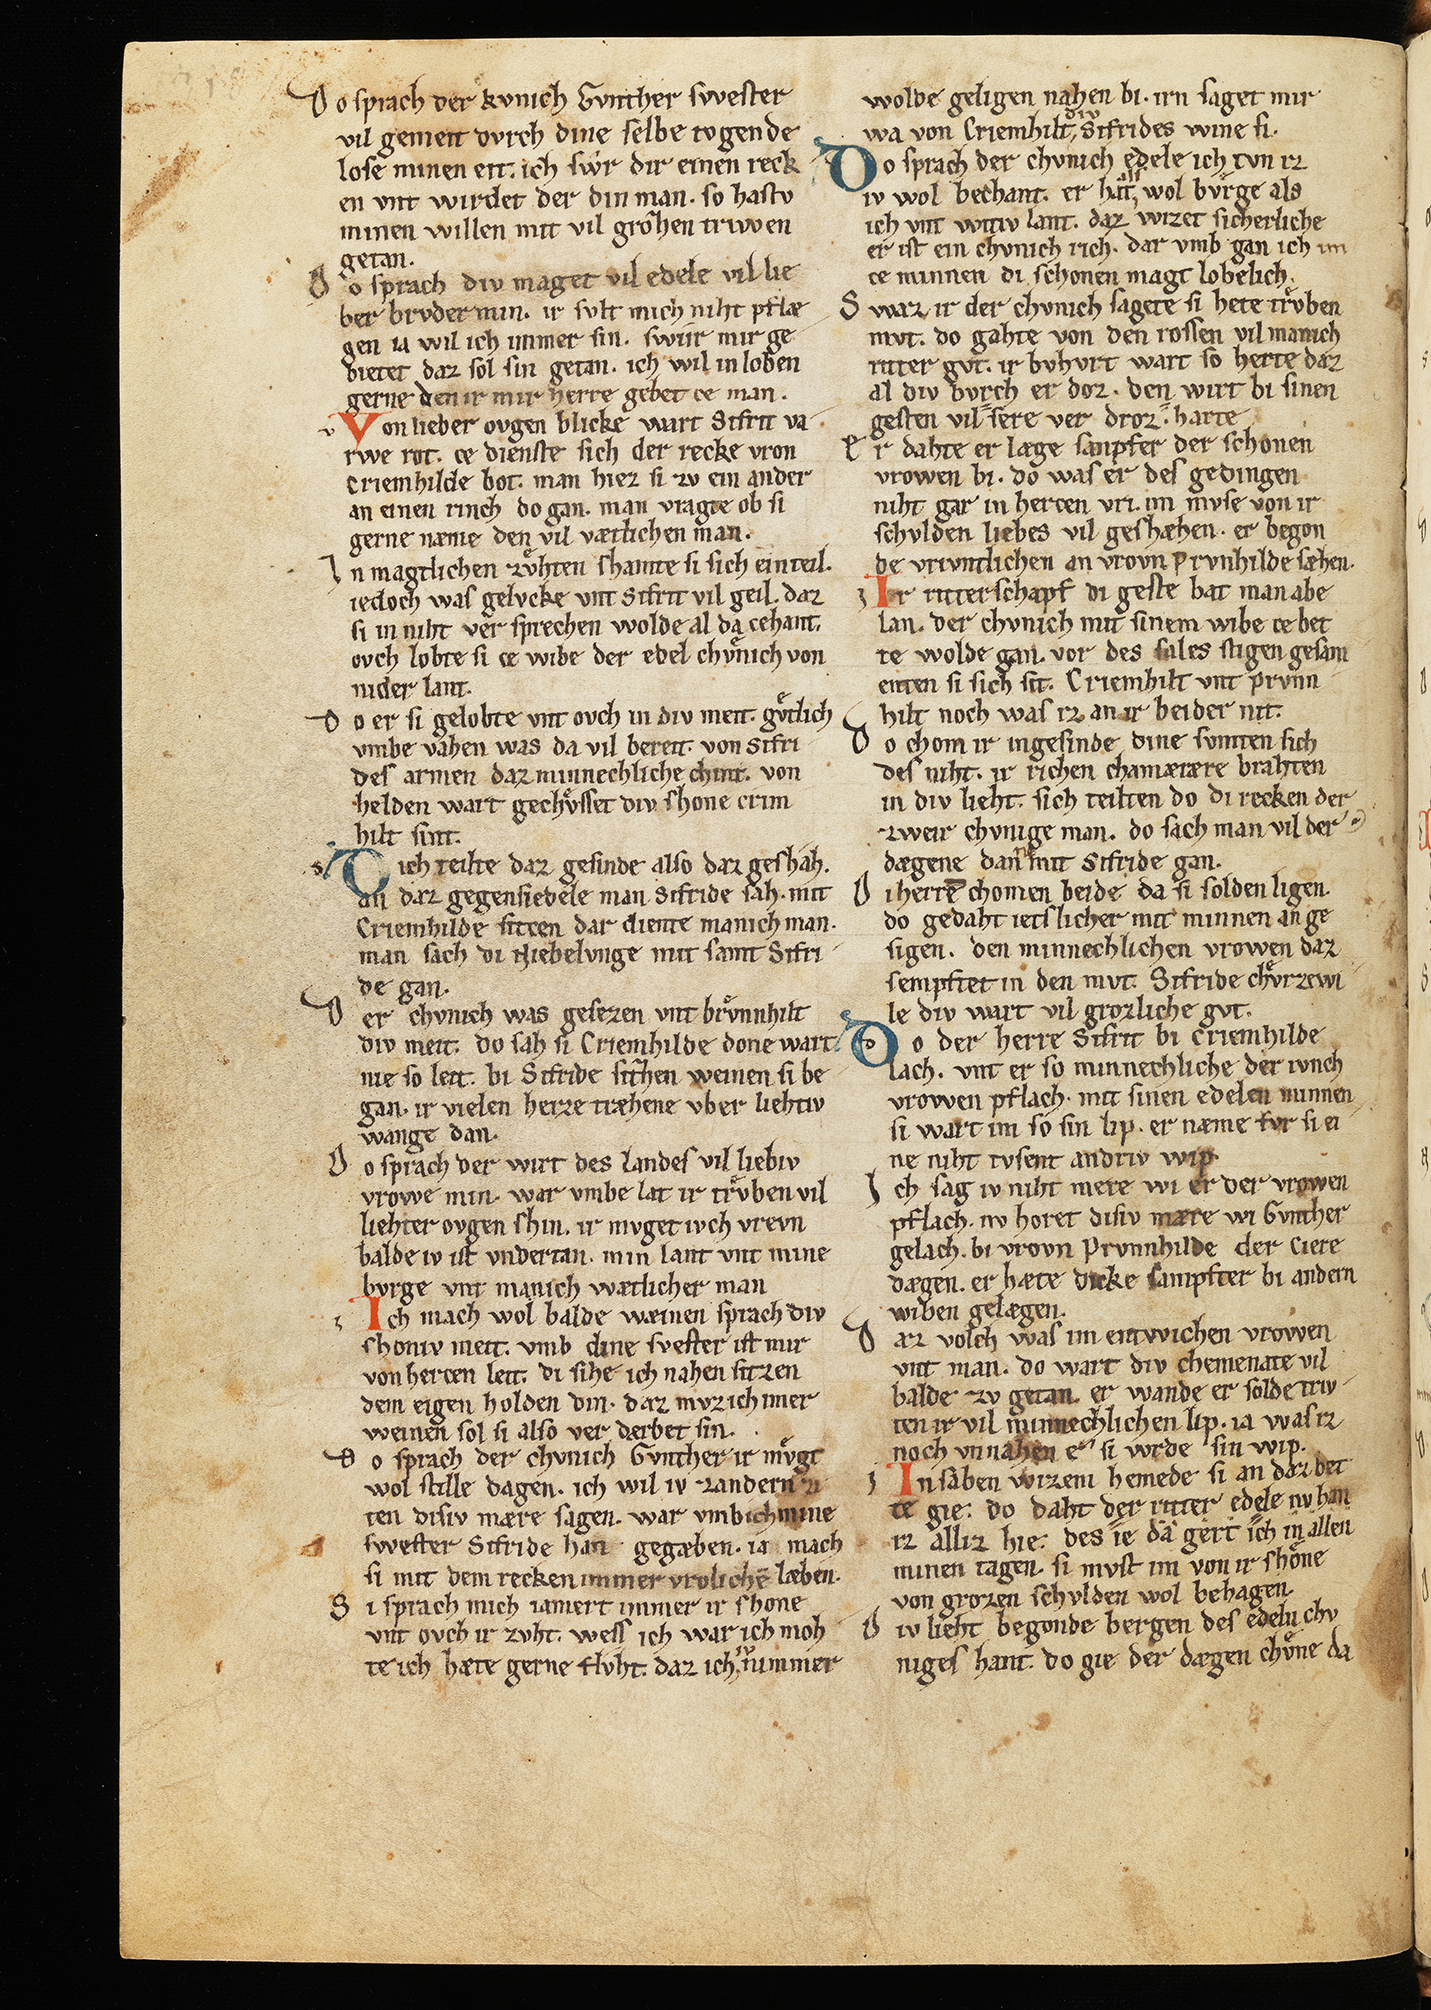 Do sprach der kvnich Gvnther swester
vil gemeit dvrch dine selbe tvgende
lose minen eit. ich swͦr dir einen reck
en vnt wirdet der din man. so hastv
minen willen mit vil grozͤen triwen
getan.
Do sprach div maget vil edele vil lie
ber brvder min. ir svlt mich niht vlæ
gen ia wil ich immer sin. swiir mir ge
bietet daz sol sin getan. ich wil in loben
gerne den ir mir herre gebet ce man.
Von lieber ovgen blicke wart Sifrit va
rwe rot. ce dienste sich der recke vron
Criemhilde bot. man hiez si zv ein ander
an einen rinch do gan. man vragte ob si
gerne næme den vil vætlichen man.
In magtlichen zvͤhten shamte si sich ein teil.
iedoch was gelvcke vnt Sifrit vil geil. daz
si in niht ver sprechen wolde al da cehant.
ovch lobte si ce wibe der edel chvͤnich von
nider lant.
Do er si gelobte vnt ovch in div meit. gvͤtlich
vmbe vahen was da vil bereit. von Sifri
des armen daz minnechliche chint. von
helden wart gechvͤsset div shone crim
hilt sint.
Sich teilte daz gesinde also daz geshah.
an daz gegensiedele man Sifride sah. mit
Criemhilde sitcen dar diente manich man.
man sach di Niebelvnge mit samt Sifri
de gan.
Der chvnich was gesezen vnt brvͤnnhilt
div meit. do sah si Criemhilde done wart
nie so leit. bi Sifride sitzͤen weinen si be
gan. ir vielen herze træhene vber liehtiv
wange dan.
Do sprach der wirt des landes vil liebiv
vrowe min. war vmbe lat ir trvͤben vil
liehter ovgen shin. ir mvget ivch vrevn
balde iv ist vndertan. min lant vnt mine
bvrge vnt manich wætlicher man
Ich mach wol balde wæinen sprach div
shoniv meit. vmb dine svester ist mir
von hercen leit. di sihe ich nahen sitzen
dem eigen holden din. daz mvz ich imer
weinen sol si also ver derbet sin.
Do sprach der chvnich Gvnther ir mvͤgt
wol stille dagen. ich wil iv zandern zi
ten disiv mære sagen. war vmb ich mine
swester Sifride han gegæben. ia mach
si mit dem recken immer vrolichē læben.
Si sprach mich iamert immer ir shone
vnt ovch ir zvht. wess ich war ich moh
te ich hæte gerne flvht. daz ich iv nimmer
wolde geligen nahen bi. irn saget mir
wa von Criemhilt div Sifrides wine si.
Do sprach der chvnich edele ich tvn iz
iv wol bechant. er hat als wol bvͤrge als
ich vnt witiv lant. daz wizet sicherliche
er ist ein chvnich rich. dar vmb gan ich im
ce minnen di schonen magt lobelich.
Swaz ir der chvnich sagete si hete trvͤben
mvt. do gahte von den rossen vil manich
ritter gvt. ir bvhvrt wart so herte daz
al div bvrch er doz. den wirt bi sinen
gesten vil sere ver droz. harte
Er dahte er læge sanpfter der schonen
vrowen bi. do was er des gedingen
niht gar in hercen vri. im mvse von ir
schvlden liebes vil geshæhen. er begon
de vrivntlichen an vrovn Prvnhilde sæhen.
Ir ritterschapf di geste bat man abe
lan. der chvnich mit sinem wibe ce bet
te wolde gan. vor des sales stigen gesam
enten si sich sit. Criemhilt vnt prvnn
hilt noch was iz an ir beider nit.
Do chom ir ingesinde dine svmten sich
des niht. ir richen chamærære brahten
in div lieht. sich teilten do di recken der
zweir chvnige man. do sach man vil der
dægene danne mit Sifride gan.
Di herren chomen beide da si solden ligen.
do gedaht ietslicher mit minnen an ge
sigen. den minnechlichen vrowen daz
sempftet in den mvt. Sifride chvͤrzewi
le div wart vil grozliche gvt.
Do der herre Sifrit bi Criemhilde
lach. vnt er so minnechliche der ivnch
vrowen pflach. mit sinen edelen minnen
si wart im so sin lip. er næme fvr si ei
ne niht tvsent andriv wip.
Ich sag iv niht mere wi er der vrowen
pflach. nv horet disiv mære wi Gvnther
gelach. bi vrovn Prvnnhilde der ciere
dægen. er hæte dicke sampfter bi andern
wiben gelægen.
Daz volch was im entwichen vrowen
vnt man. do wart div chemenate vil
balde zv getan. er wande er solde triv
ten ir vil minnechlichen lip. ia was iz
noch vnnahen e si wrde sin wip.
In saben wizem hemede si an daz bet
te gie. do daht der ritter edele nv han
iz alliz hie. des ie da gert ich in allen
minen tagen. si mvst im von ir shoͤne
von grozen schvlden wol behagen.
Div lieht begonde bergen des edeln chv
niges hant. do gie der dægen chvͤne da